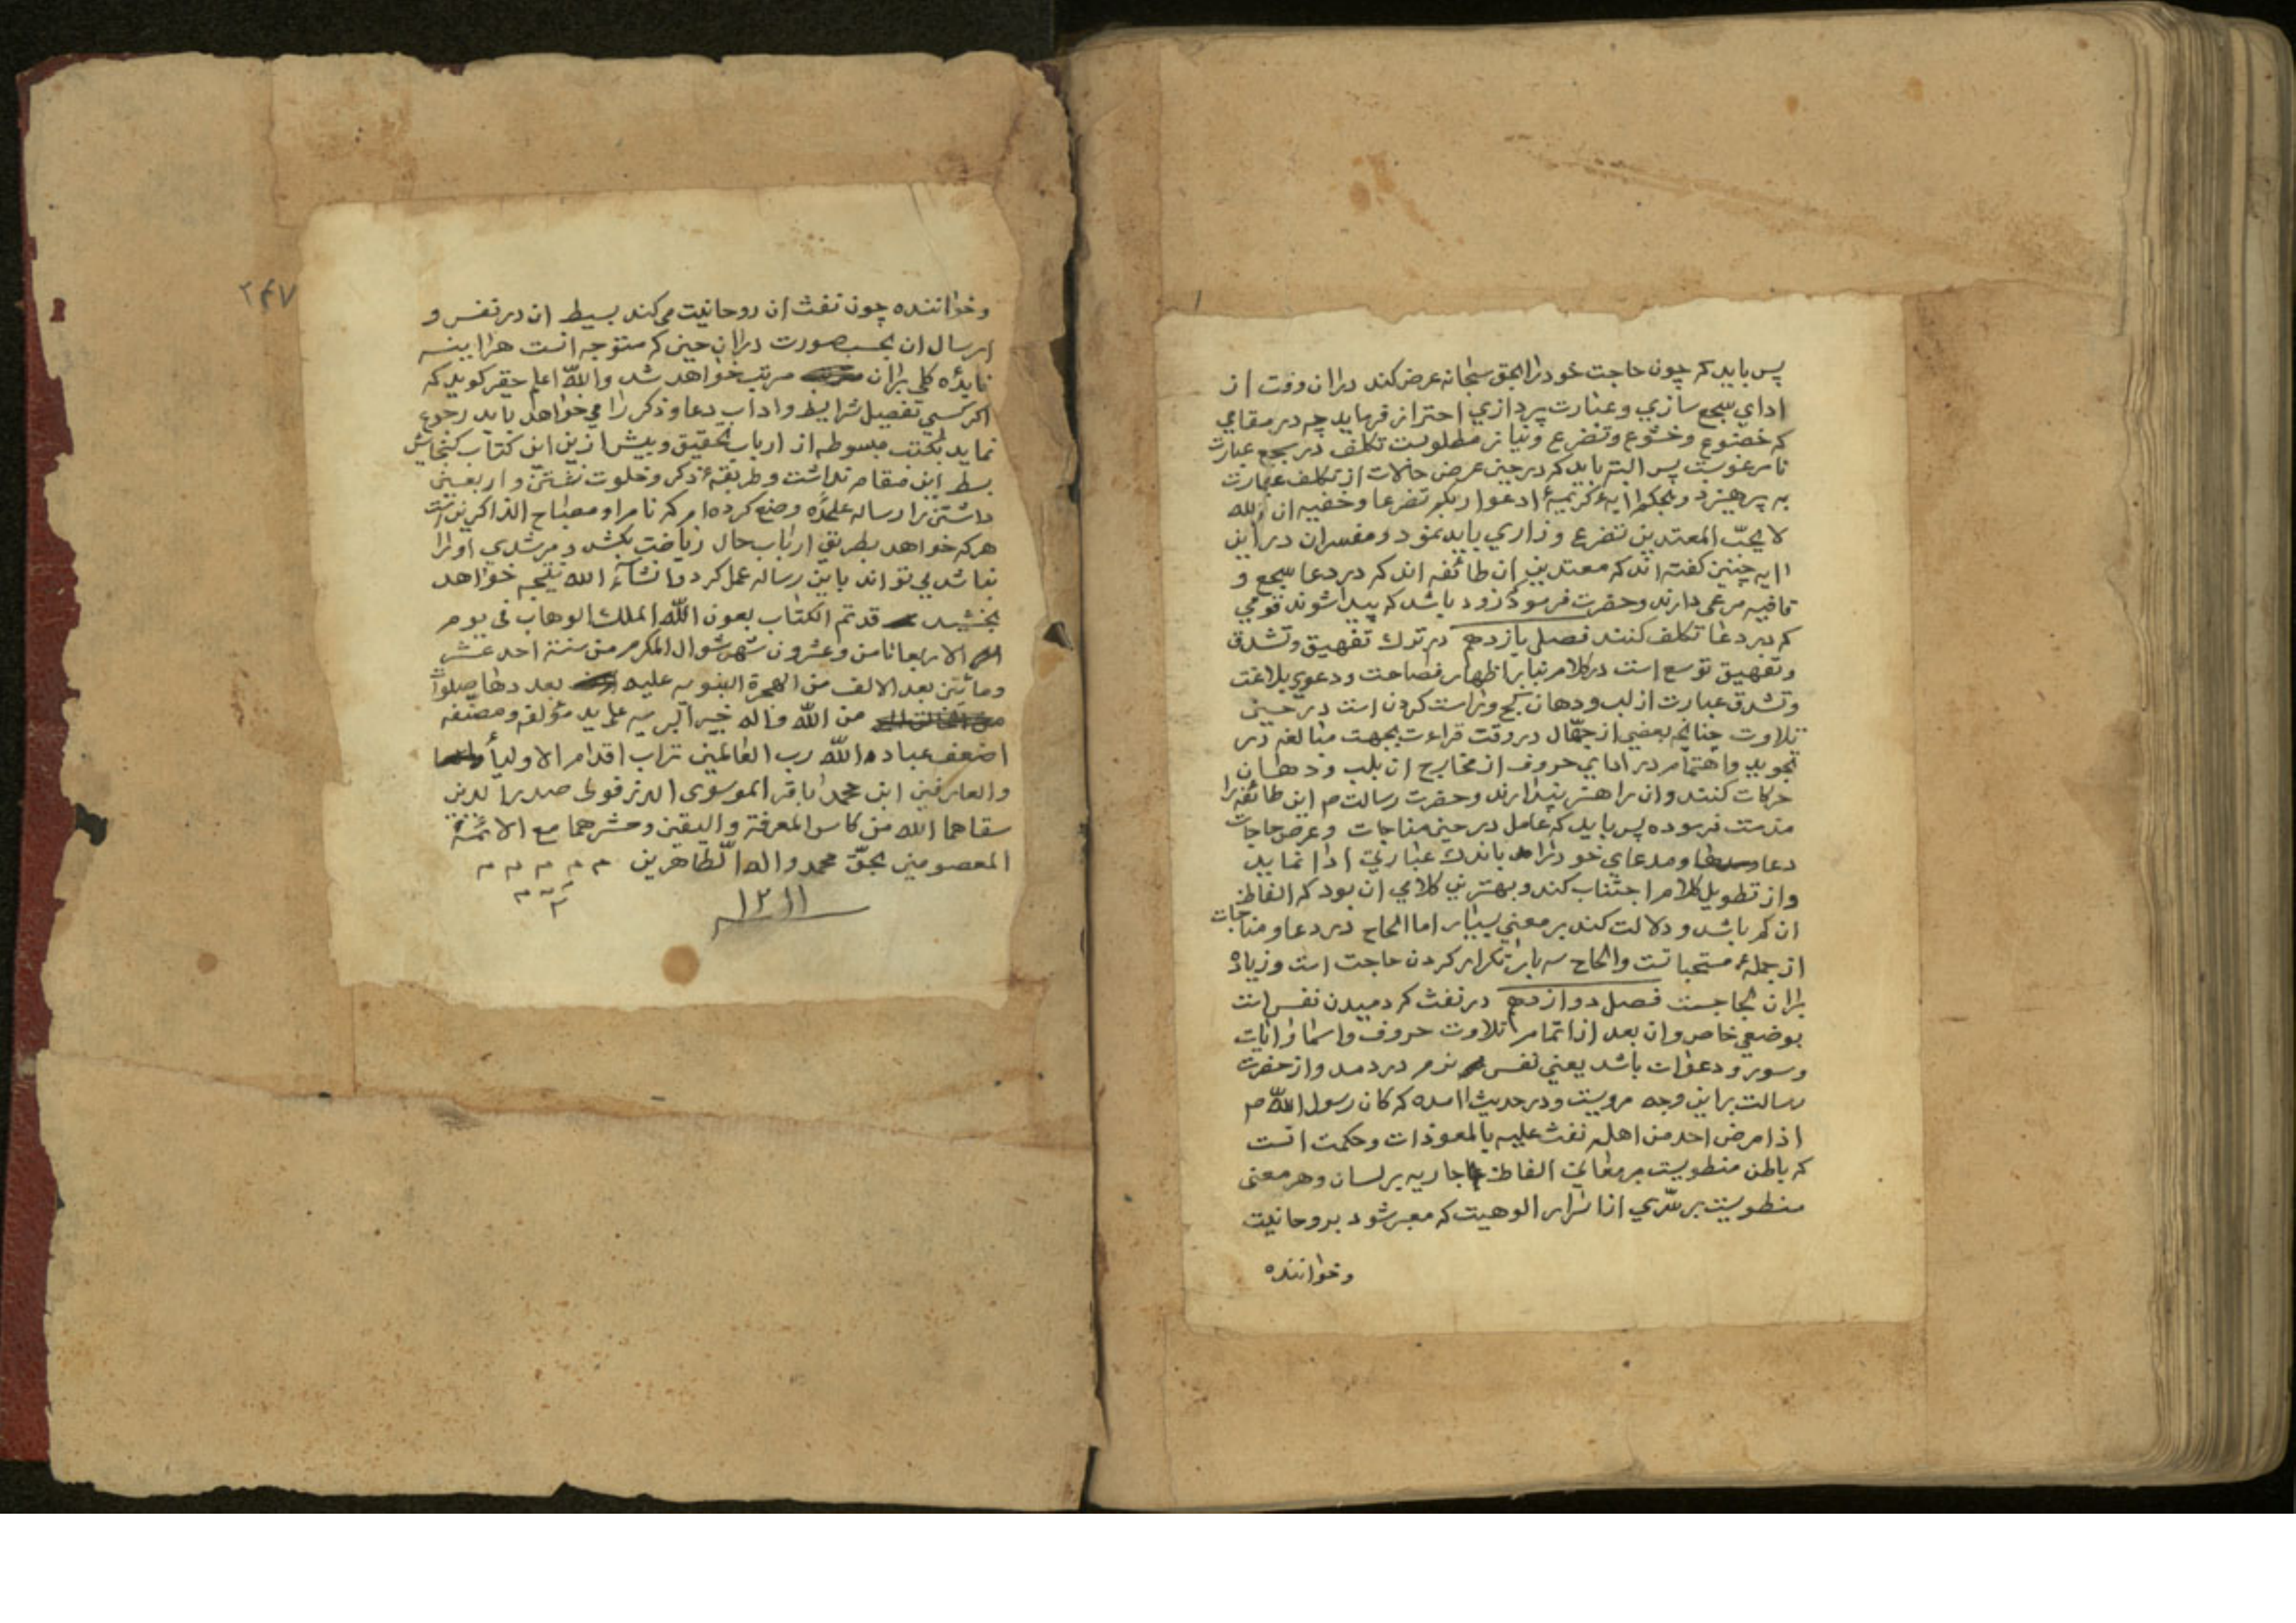 پس باید که چون حاجت خود را بحق سبحانه عرض کند در ان وقت از
ادای سجع سازی و عبارت پردازی احتراز فرماید چه در مقامی
که خضوع و خشوع و تضرع و نیاز مطلوبست تکلف در سجع عبارت
نامرغوبست پس البته باید که در حین عرض حالات از تکلف عبارت
به پرهیزد و بحکم ایهٔ کریمهٔ ادعوا ربکم تضرعا و خفیه ان الله
لا یحبّ المعتدین تضرع و زاری باید نمود و مفسران در این
ایه چنین کفته اند که معتدین ان طائفه اند که در دعا سجع و
قافیه مرعی دارند و حضرت فرموده زود باشد که پیدا شوند قومی
که در دعا تکلف کنند فصل یازدهم در ترک تفهیق و تشدق
و تفهیق توسع است در کلام بنا بر اظهار فصاحت و دعوی بلاغت
و تشدق عبارت از لب و دهان کج و راست کردن است در حین
تلاوت چنانچه بعضی از جهّال در وقت قراءت بجهت مبالغه در
تجوید و اهتمام در ادای حروف از مخارج ان بلب و دهان
حرکات کنند و ان را هنر پندارند و حضرت رسالت م این طائفه را
مذمت فرموده پس باید که عامل در حین مناجات و عرض حاجات
دعا و مدعای خود را باندک عبارتی ادا نماید
و از تطویل کلام اجتناب کند و بهترین کلامی ان بود که الفاظ
ان کم باشد و دلالت کند بر معنی بسیار اما الحاح در دعا و مناجات
از جملهٔ مستحباتست و الحاح سه بار تکرار کردن حاجت است و زیاده
بران لجاجست فصل دوازدهم در نفث که دمیدن نفس است
بوضعی خاص و ان بعد از اتمام تلاوت حروف و اسما و ایات
و سور و دعوات باشد یعنی نفس نرم در دمد و از حضرت
رسالت براین وجه مرویست و در حدیث امده که کان رسول الله م
اذا مرض احد من اهله نفث علیه بالمعوذات و حکمت انست
که باطن منطویست بر معانی الفاظ جاریه بر لسان و هر معنی
منطویست بر سّری از اسرار الوهیت که معبر شود بروحانیت
و خواننده
۲۴۷
وخواننده چون نفث ان روحانیت می کند بسیط ان در نفس و
ارسال ان بحسب صورت دران حین که متوجه انست هراینه
فایدهٔ کلی بران مرتب خواهد شد والله اعلم حقیر کوید که
اکر کسی تفصیل شرایط و اداب دعا و ذکر را می خواهد باید رجوع
نماید بکتب مبسوطه از ارباب تحقیق و بیش ازین این کتاب کنجایش
بسط این مقام نداشت و طریقهٔ ذکر و خلوت نشستن و اربعین
داشتن را رساله علیحده وضع کرده ام که نام او مصباح الذاکرین است
هر که خواهد بطریق ارباب حال ریاضت بکشد و مرشدی او را
نباشد می تواند باین رساله عمل کرد و انشاء الله نتیجه خواهد
بخشید قد تم الکتاب بعون الله الملک الوهاب فی یوم
الاربعا ثامن و عشرون شهر شوال المکرم من سنة احد عشر
و مأتین بعد الالف من الهجرة النبویه علیه بعددها صلواة
من الله و اله خیر البریه علی ید مؤلفه و مصنفه
اضعف عباد الله رب العالمین تراب اقدام الاولیاء
والعارفین ابن محمد باقر الموسوی الدزفولی صدرالدین
سقاهما الله من کاس المعرفة والیقین و حشرهما مع الائمة
المعصومین بحقّ محمد و اله الطاهرین م م م م م
م م م
م
۱۲۱۱